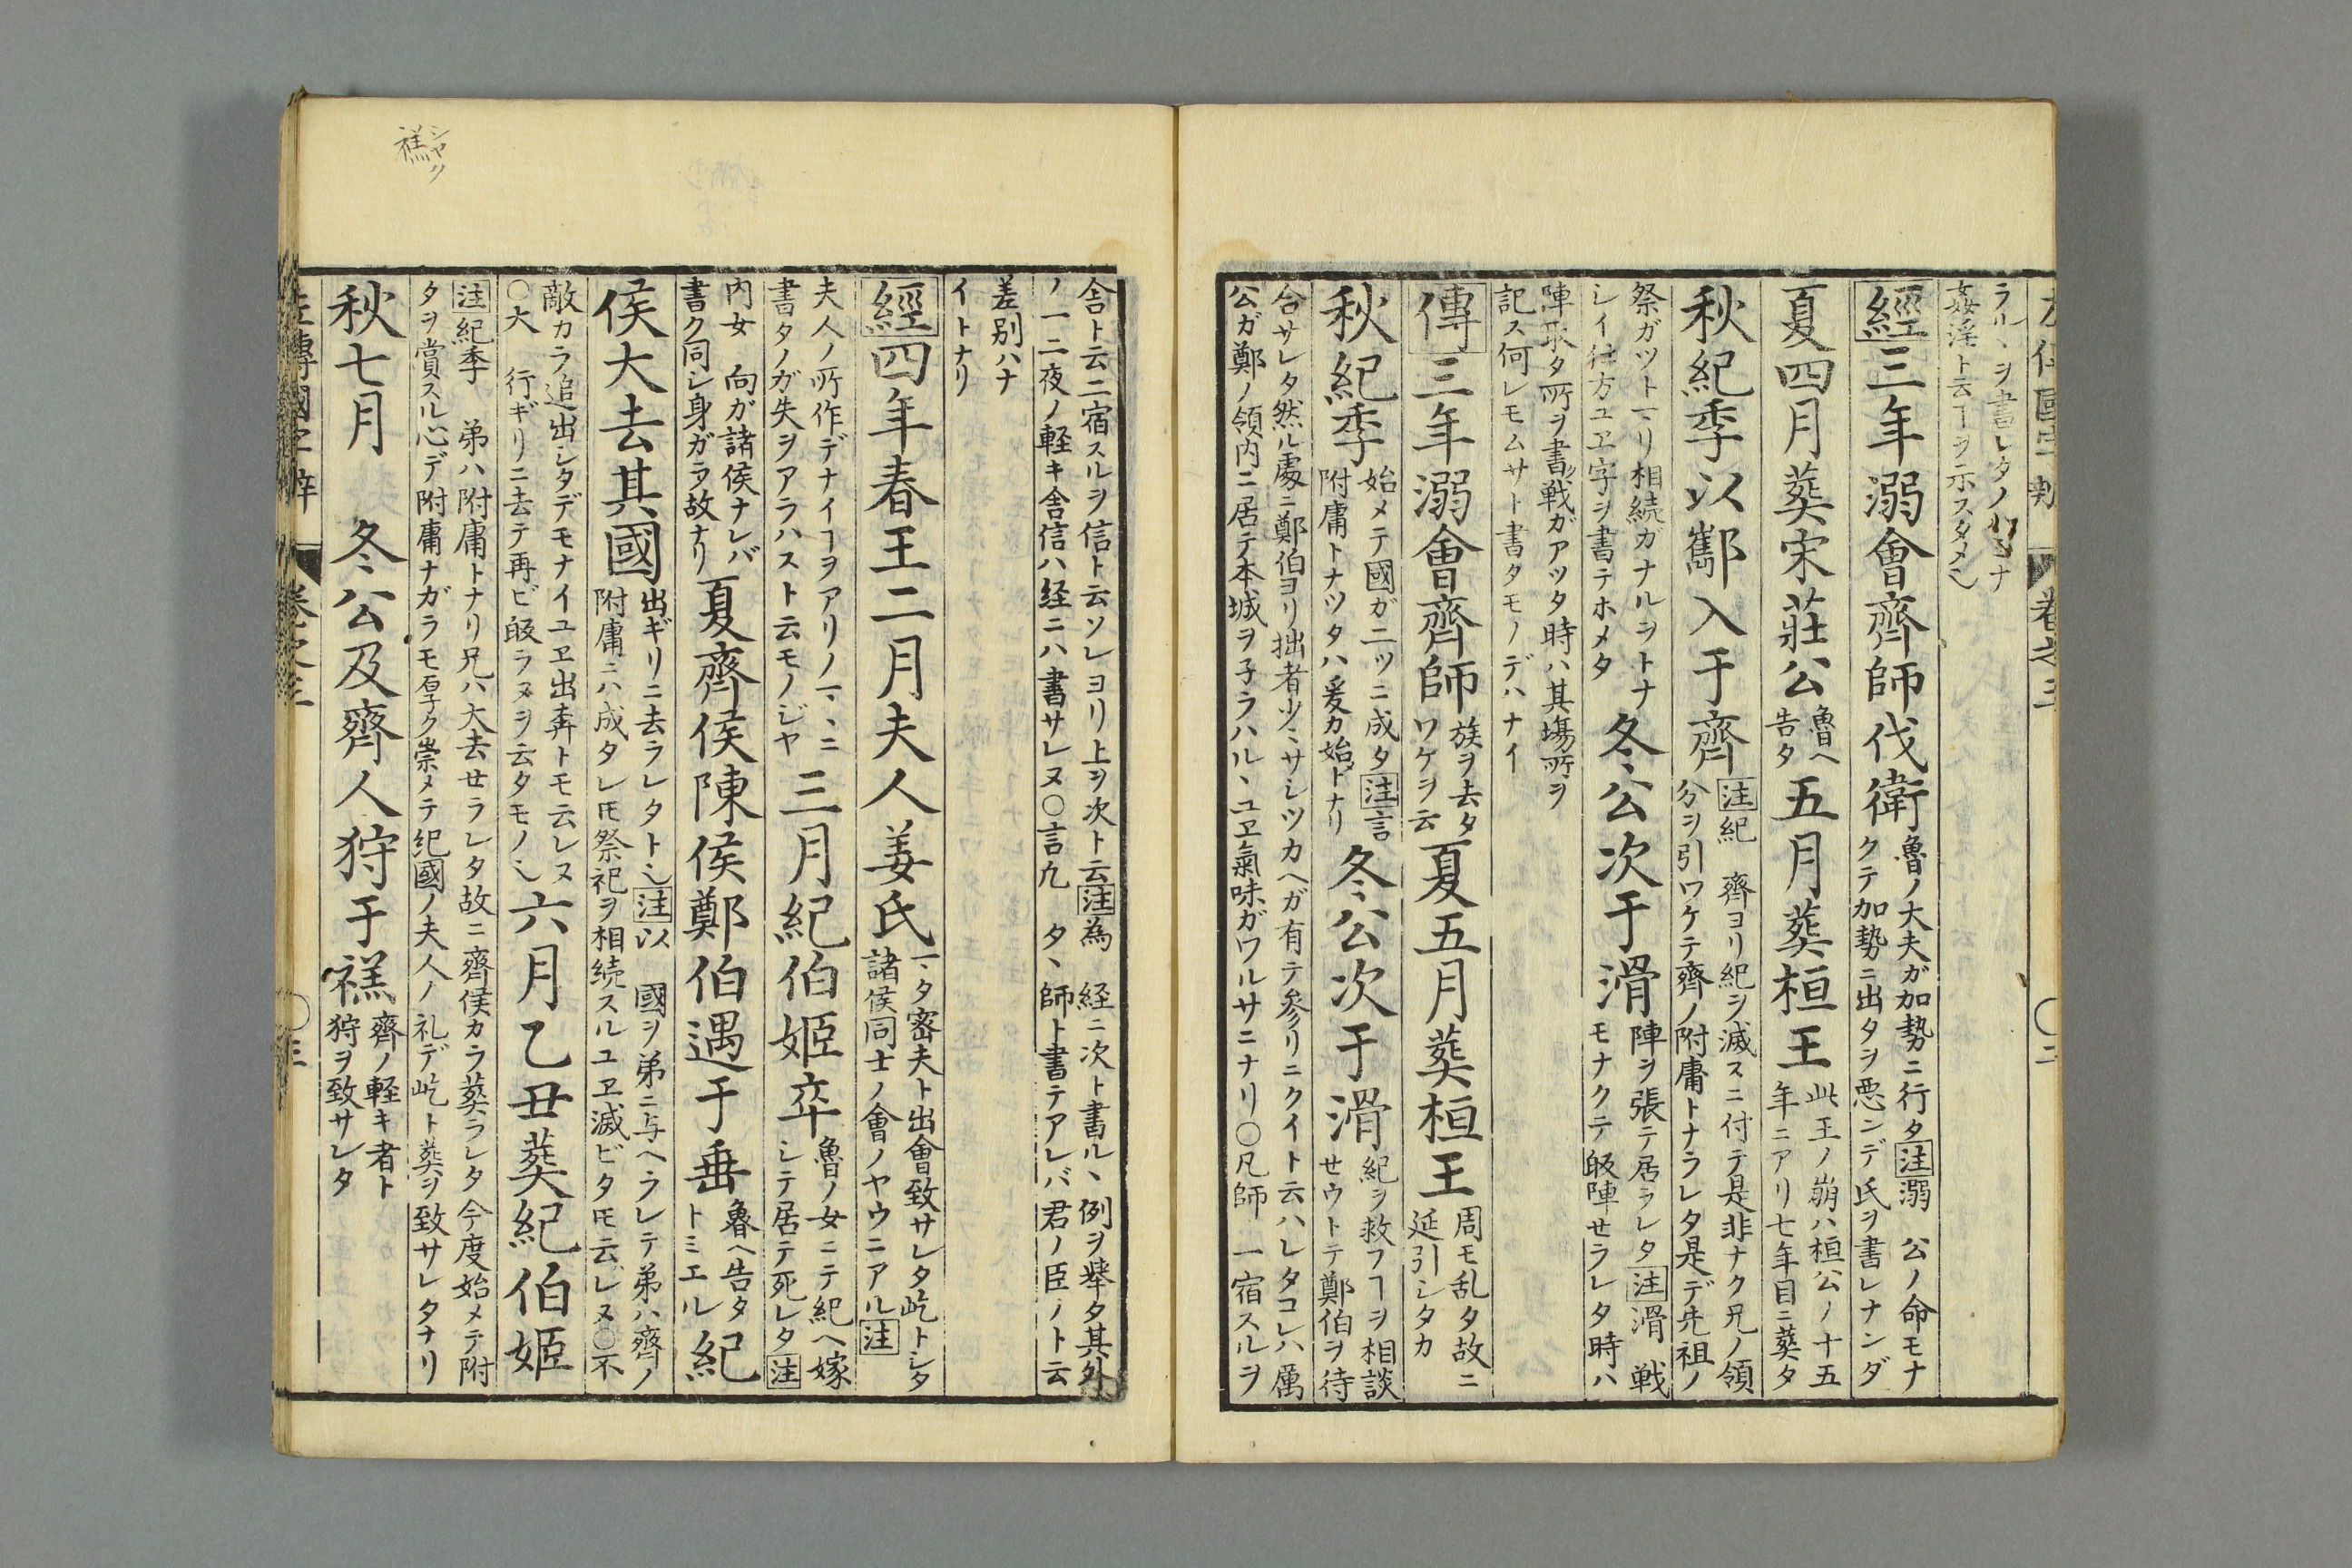 ラルヽヲ書レタノハミナ
姦淫ト云ヿヲ示スタメ也
經三年溺會齊師伐衛
魯ノ大夫ガ加勢ニ行タ注溺 公ノ命モナ
クテ加勢ニ出タヲ悪ンデ氏ヲ書レナンダ
夏四月葬宋莊公
魯ヘ
告タ
五月葬桓王
此王ノ崩ハ桓公ノ十五
年ニアリ七年目ニ葬タ
秋紀季以酅入于齊
注紀 齊ヨリ紀ヲ滅スニ付テ是非ナク兄ノ領
分ヲ引ワケテ齊ノ附庸トナラレタ是デ先祖ノ
祭ガツトヽマリ相続ガナルヲトナ
シイ仕方ユヱ字ヲ書テホメタ
冬公次于滑
陣ヲ張テ居ラレタ注滑 戦
モナクテ皈陣せラレタ時ハ
陣取タ所ヲ書戦ガアツタ時ハ其塲所ヲ
記ス何レモムサト書タモノデハナイ
傳三年溺會齊師
族ヲ去タ
ワケヲ云
夏五月葬桓王
周モ乱タ故ニ
延引シタカ
秋紀季
始メテ國ガ二ツニ成タ注言
附庸トナツタハ爰カ始トナリ
冬公次于滑
紀ヲ救フヿヲ相談
せウトテ鄭伯ヲ待
合サレタ然ル處ニ鄭伯ヨリ拙者少〻サシツカヘガ有テ参リニクイト云ハレタコレハ厲
公ガ鄭ノ領内ニ居テ本城ヲ子ラハルヽユヱ氣味ガワルサニナリ〇凡師 一宿スルヲ
舎ト云二宿スルヲ信ト云ソレヨリ上ヲ次ト云注為 経ニ次ト書ルヽ例ヲ举タ其外
ノ一二夜ノ軽キ舎信ハ経ニハ書サレヌ〇言凡 タヽ師ト書テアレバ君ノ臣ノト云
差别ハナ
イトナリ
經四年春王二月夫人姜氏
マタ密夫ト出會致サレタ屹トシタ
諸侯同士ノ會ノヤウニアル注
夫人ノ所作デナイヿヲアリノマヽニ
書タノガ失ヲアラハスト云モノジヤ
三月紀伯姬卒
魯ノ女ニテ紀ヘ嫁
シテ居テ死レタ注
内女 向ガ諸侯ナレバ
書ク同シ身ガラ故ナリ
夏齊侯陳侯鄭伯遇于垂
魯ヘ告タ
トミエル
紀
侯大去其國
出ギリニ去ラレタト也注以 國ヲ弟ニ与ヘラレテ弟ハ齊ノ
附庸ニハ成タレ𪜈祭祀ヲ相続スルユヱ滅ビタ𪜈云レヌ〇不
敵カラ追出シタデモナイユヱ出奔トモ云レヌ
〇大 行ギリニ去テ再ビ皈ラヌヲ云タモノ也
六月乙丑葬紀伯姬
注紀季 弟ハ附庸トナリ兄ハ大去せラレタ故ニ齊侯カラ葬ラレタ今度始メテ附
タヲ賞スル心デ附庸ナガラモ厚ク崇メテ紀國ノ夫人ノ礼デ屹ト葬ヲ致サレタナリ
秋七月 冬公及齊人狩于禚
齊ノ軽キ者ト
狩ヲ致サレタ
卷之三
〇三
シヤク
禚